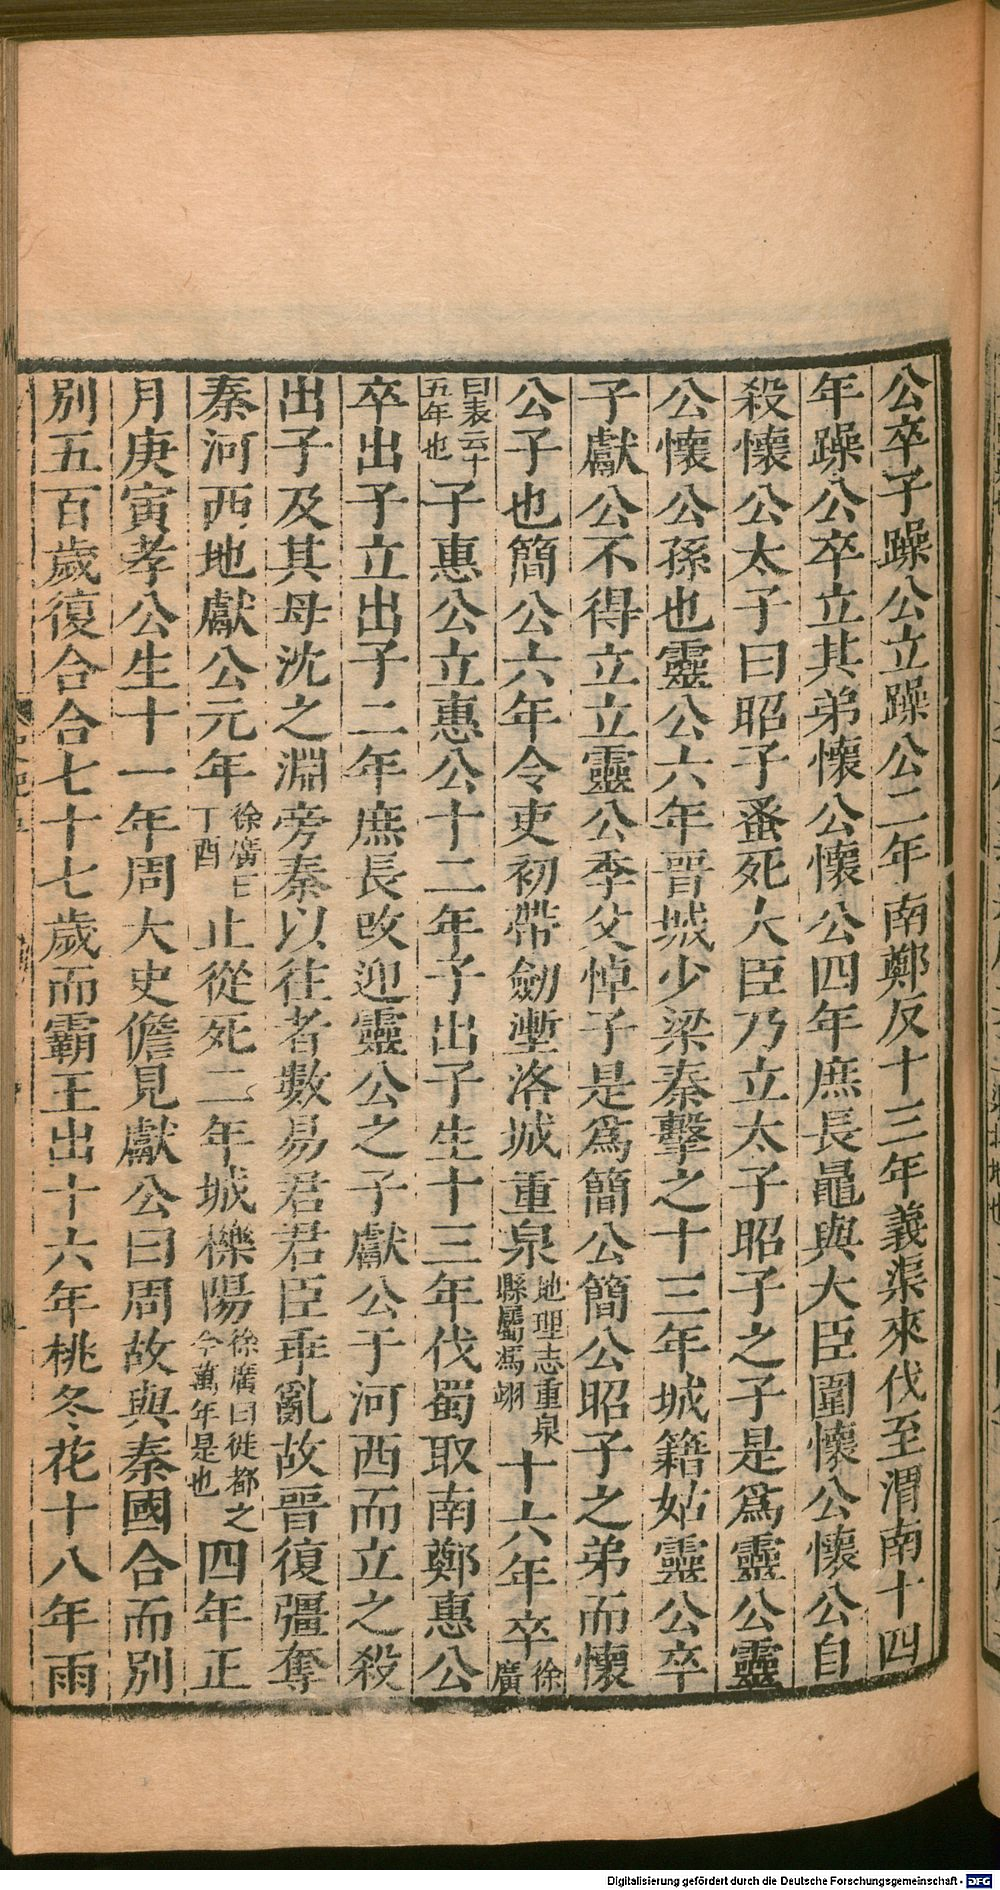 公卒子躁公立躁公二年南鄭反十三年義渠來伐至渭南十四
年躁公卒立其弟懷公懷公四年庶長鼂與大臣圍懷公懷公自
殺懷公太子曰昭子蚤死大臣乃立太子昭子之子是爲靈公靈
公懷公孫也靈公六年晉城少梁秦擊之十三年城籍姑靈公卒
子獻公不得立立靈公季父悼子是爲簡公簡公昭子之弟而懷
公子也簡公六年令吏初帶劒壍洛城重泉地理志重泉縣屬馮翊十六年卒徐廣
曰表云十五年也子惠公立惠公十二年子出子生十三年伐蜀取南鄭惠公
卒出子立出子二年庶長改迎靈公之子獻公于河西而立之殺
出子及其母沈之淵旁秦以往者數易君君臣乖亂故晉復彊奪
秦河西地獻公元年徐廣曰丁酉止從死二年城櫟陽徐廣曰徙都之今萬年是也四年正
月庚寅孝公生十一年周大史儋見獻公曰周故與秦國合而別
別五百歲復合合七十七歲而霸王出十六年桃冬花十八年雨
Digitalisierung gefördert durch die Deutsche Forschungsgemeinschaft - DFG